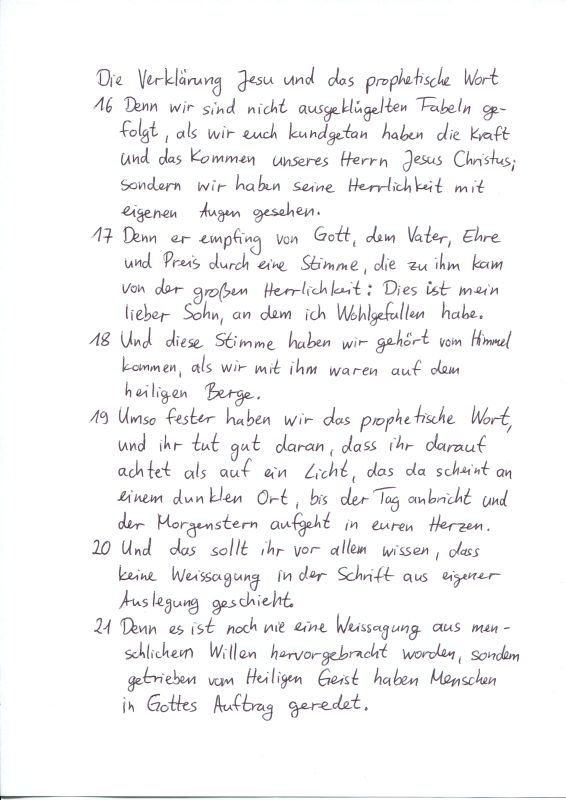 Die Verklärung Jesu und das prophetische Wort
16 Denn wir sind nicht ausgeklügelten Fabeln ge-
folgt, als wir euch kundgetan haben die Kraft
und das Kommen unseres Herrn Jesus Christus;
sondern wir haben seine Herrlichkeit mit
eigenen Augen gesehen.
17 Denn er empfing von Gott, dem Vater, Ehre
und Preis durch eine Stimme, die zu ihm kam
von der großen Herrlichkeit: Dies ist mein
lieber Sohn, an dem ich Wohlgefallen habe.
18 Und diese Stimme haben wir gehört vom Himmel
kommen, als wir mit ihm waren auf dem
heiligen Berge.
19 Umso fester haben wir das prophetische Wort,
und ihr tut gut daran, dass ihr darauf
achtet als auf ein Licht, das da scheint an
einem dunklen Ort, bis der Tag anbricht und
der Morgenstern aufgeht in euren Herzen.
20 Und das sollt ihr vor allem wissen, dass
keine Weissagung in der Schrift aus eigener
Auslegung geschieht.
21 Denn es ist noch nie eine Weissagung aus men-
schlichem Willen hervorgebracht worden, sondern
getrieben vom Heiligen Geist haben Menschen
in Gottes Auftrag geredet.